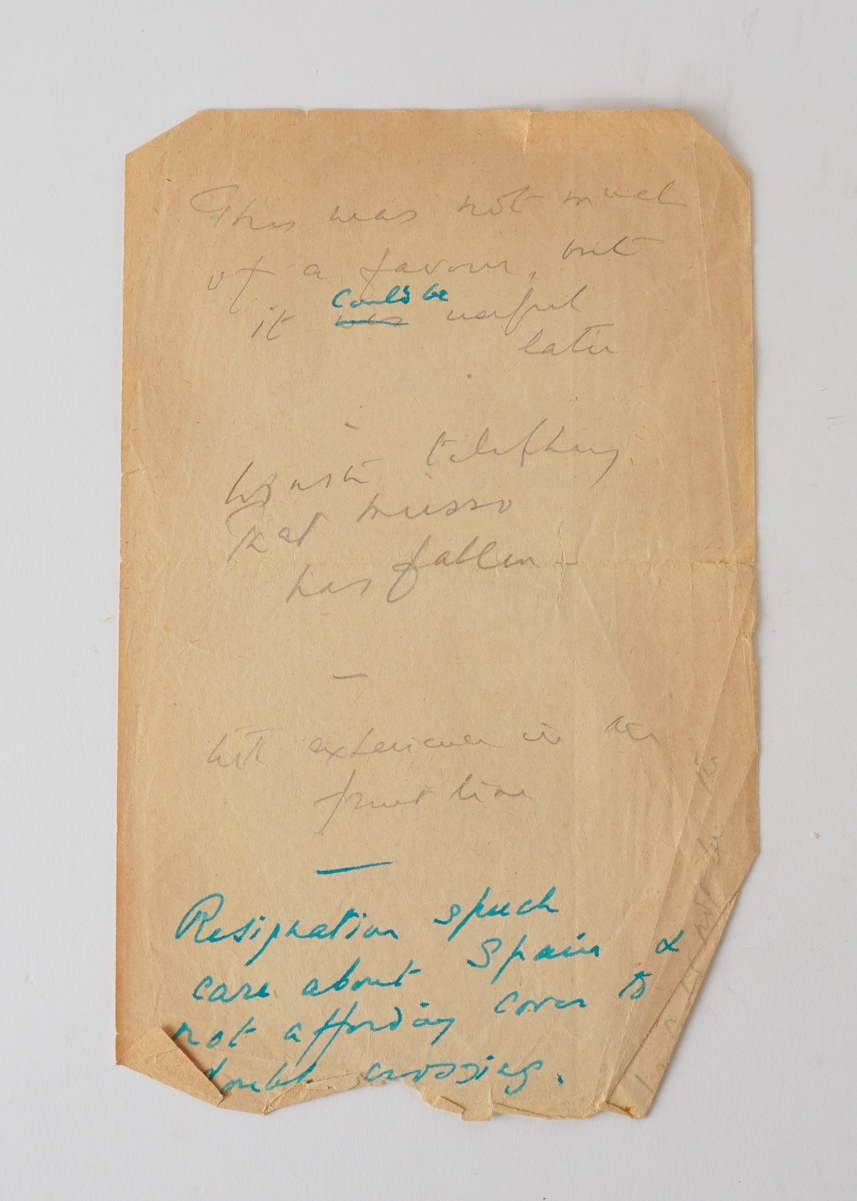 This was not much
of a favour, but
could be
it was useful
later
telephoning
that Musso
has fallen
experience in
front line
Resignation speech
care about Spain &
not affording cover to
double crossing.